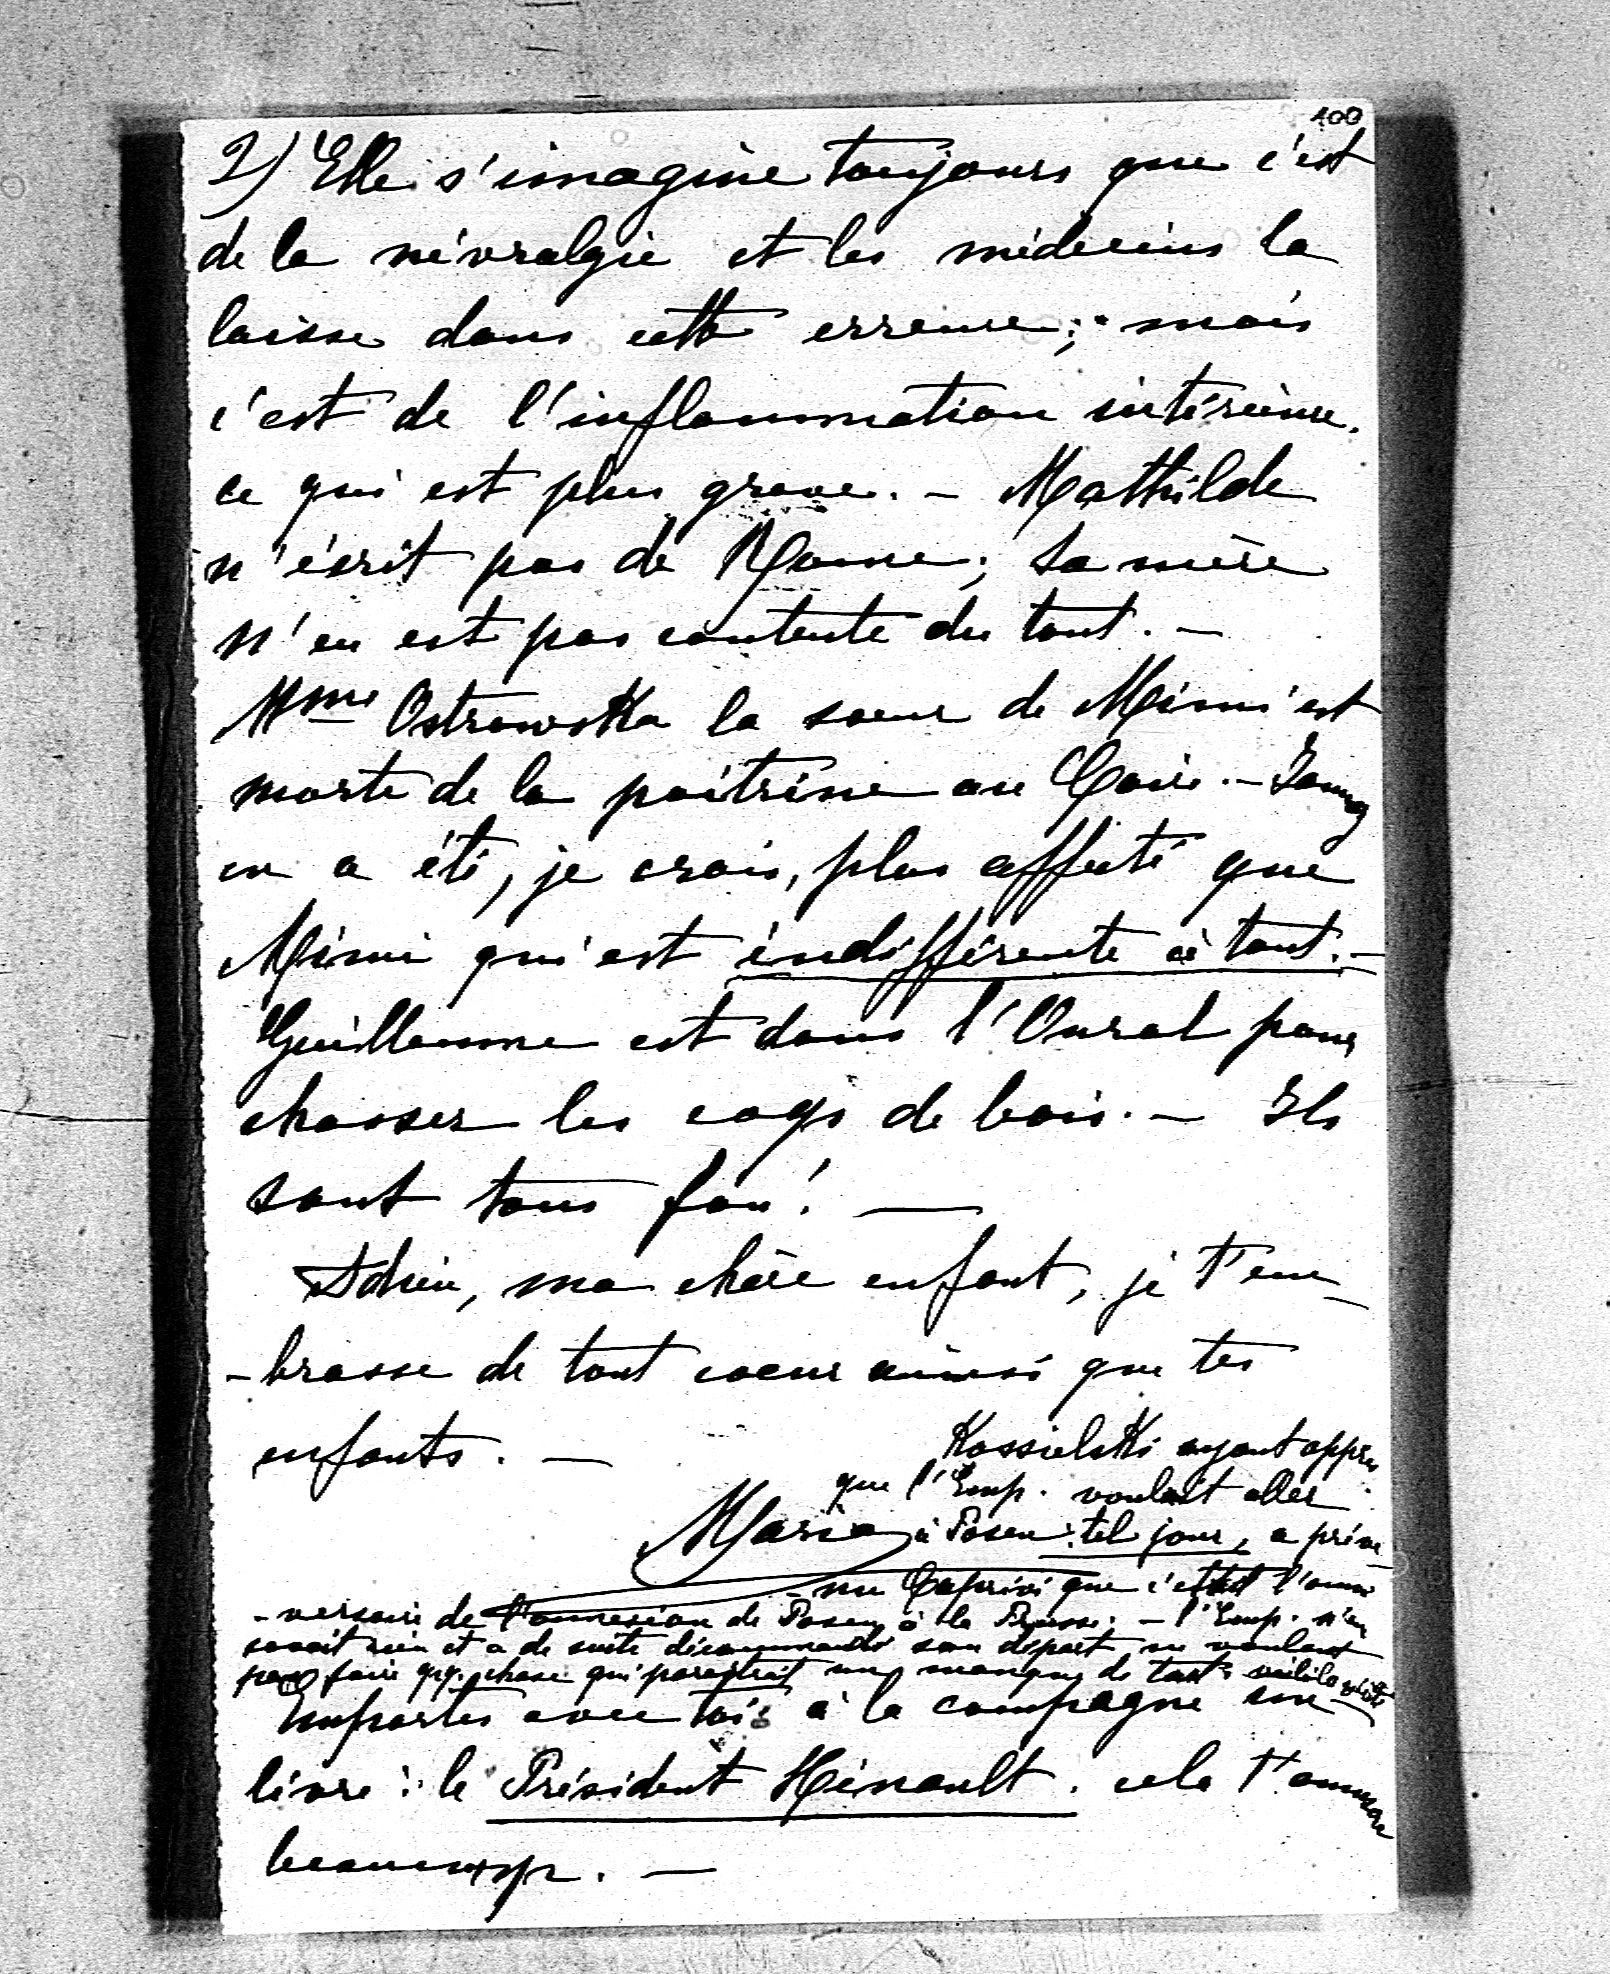 100
2) Elle s'imagine toujours que c'est
de la névralgie et les médecins la
laisse dans cette erreure; mais
c'est de l'inflammation intérieure.
ce qui est plus grave. – Mathilde
n'écrit pas de Rome; sa mère
n'en est pas contente du tout. –
Mme Ostrowska la soeur de Mimi est
morte de la poitrine au Caire. –
en a été, je crois, plus affecté que
Mimi qui est indifférente à tout. –
Guillaume est dans l'Oural pour
chasser les coqs de bois. – Ils
sont tous fou! —
Adieu, ma chère enfant, je t'em-
-brasse de tout coeur ainsi que tes
enfants. —
Maria
Kossielski ayant appris
que l'Emp. voulait aller
à Posen tel jour, a préve-
-nu Caprivi que c'était l'anni
-versaire de l'annexion de Posen à la Prusse. – l'Emp. n'en
savait rien et a de suite décommandé son départ ne voulant
pas faire qq. chose qui paraîtrait un manque de tact
Emportes avec toi à la campagne un
livre: le Président Hénault. cela t'amusera
beaucoup. —